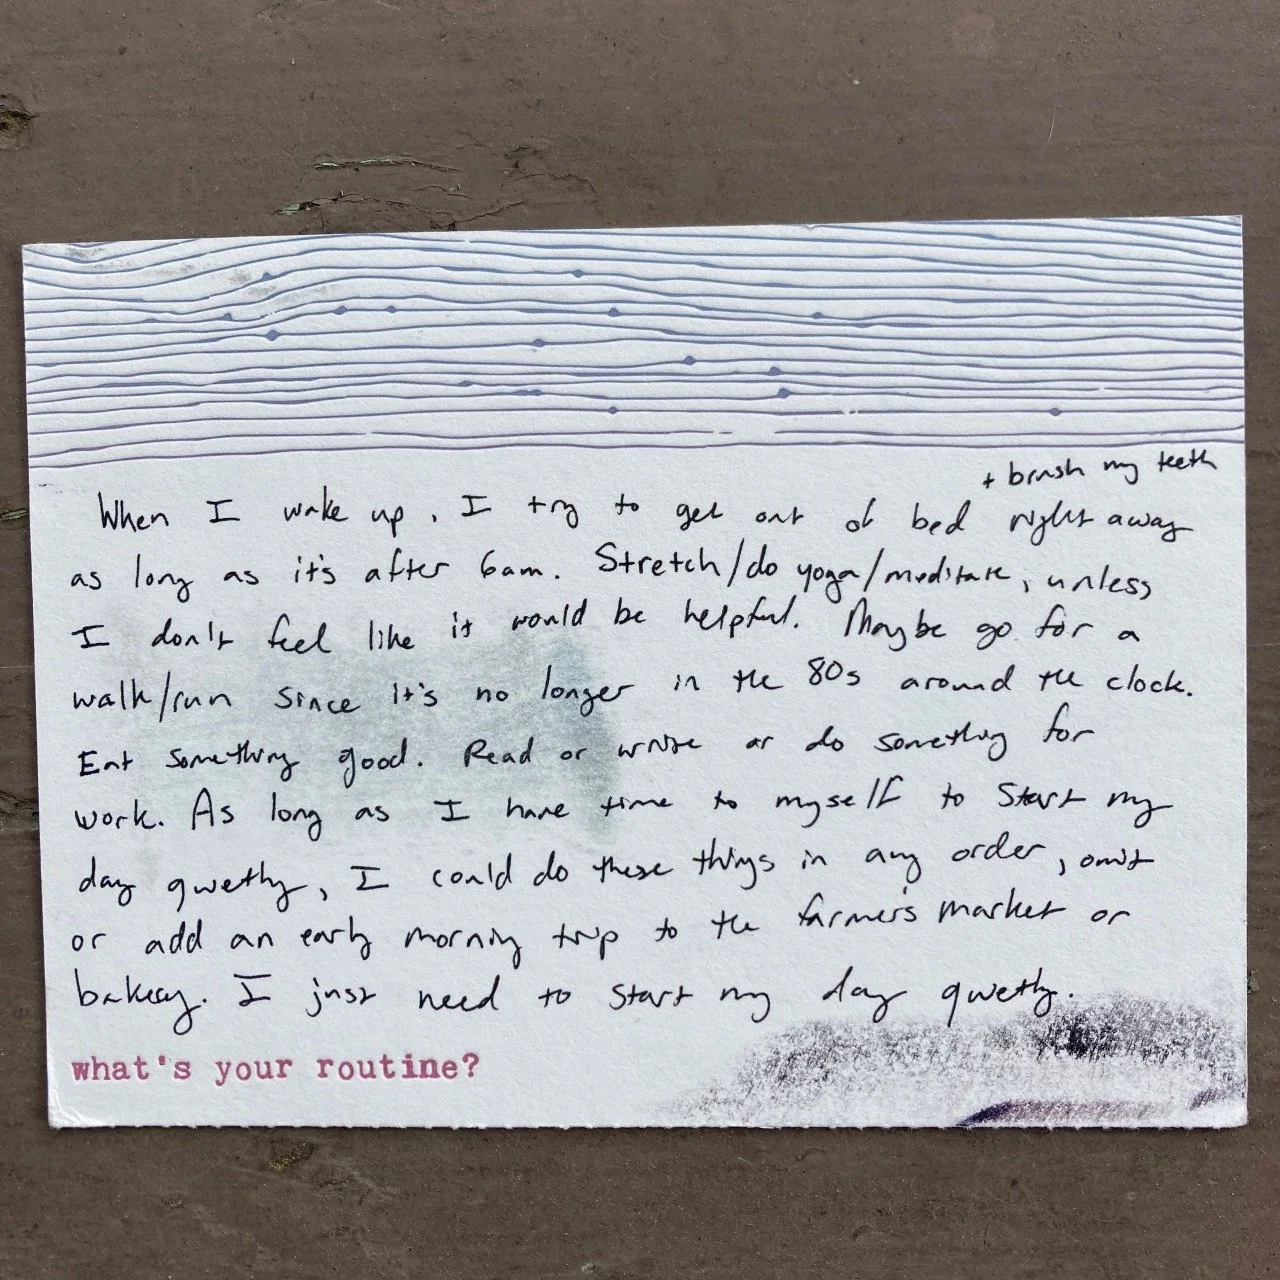 + brush my teeth
When I wake up, I try to get out of bed right away
as long as it's after 6am. Stretch/do yoga/meditate, unless
I don't feel like it would be helpful. Maybe go for a
walk/run since it's no longer in the 80s around the clock.
Eat something good. Read or write or do something for
work. As long as I have time to myself to start my
day qwetly, I could do these things in any order, omit
or add an early morning trip to the farmer's market or
bakery. I just need to start my day qwetly.
what's your routine?